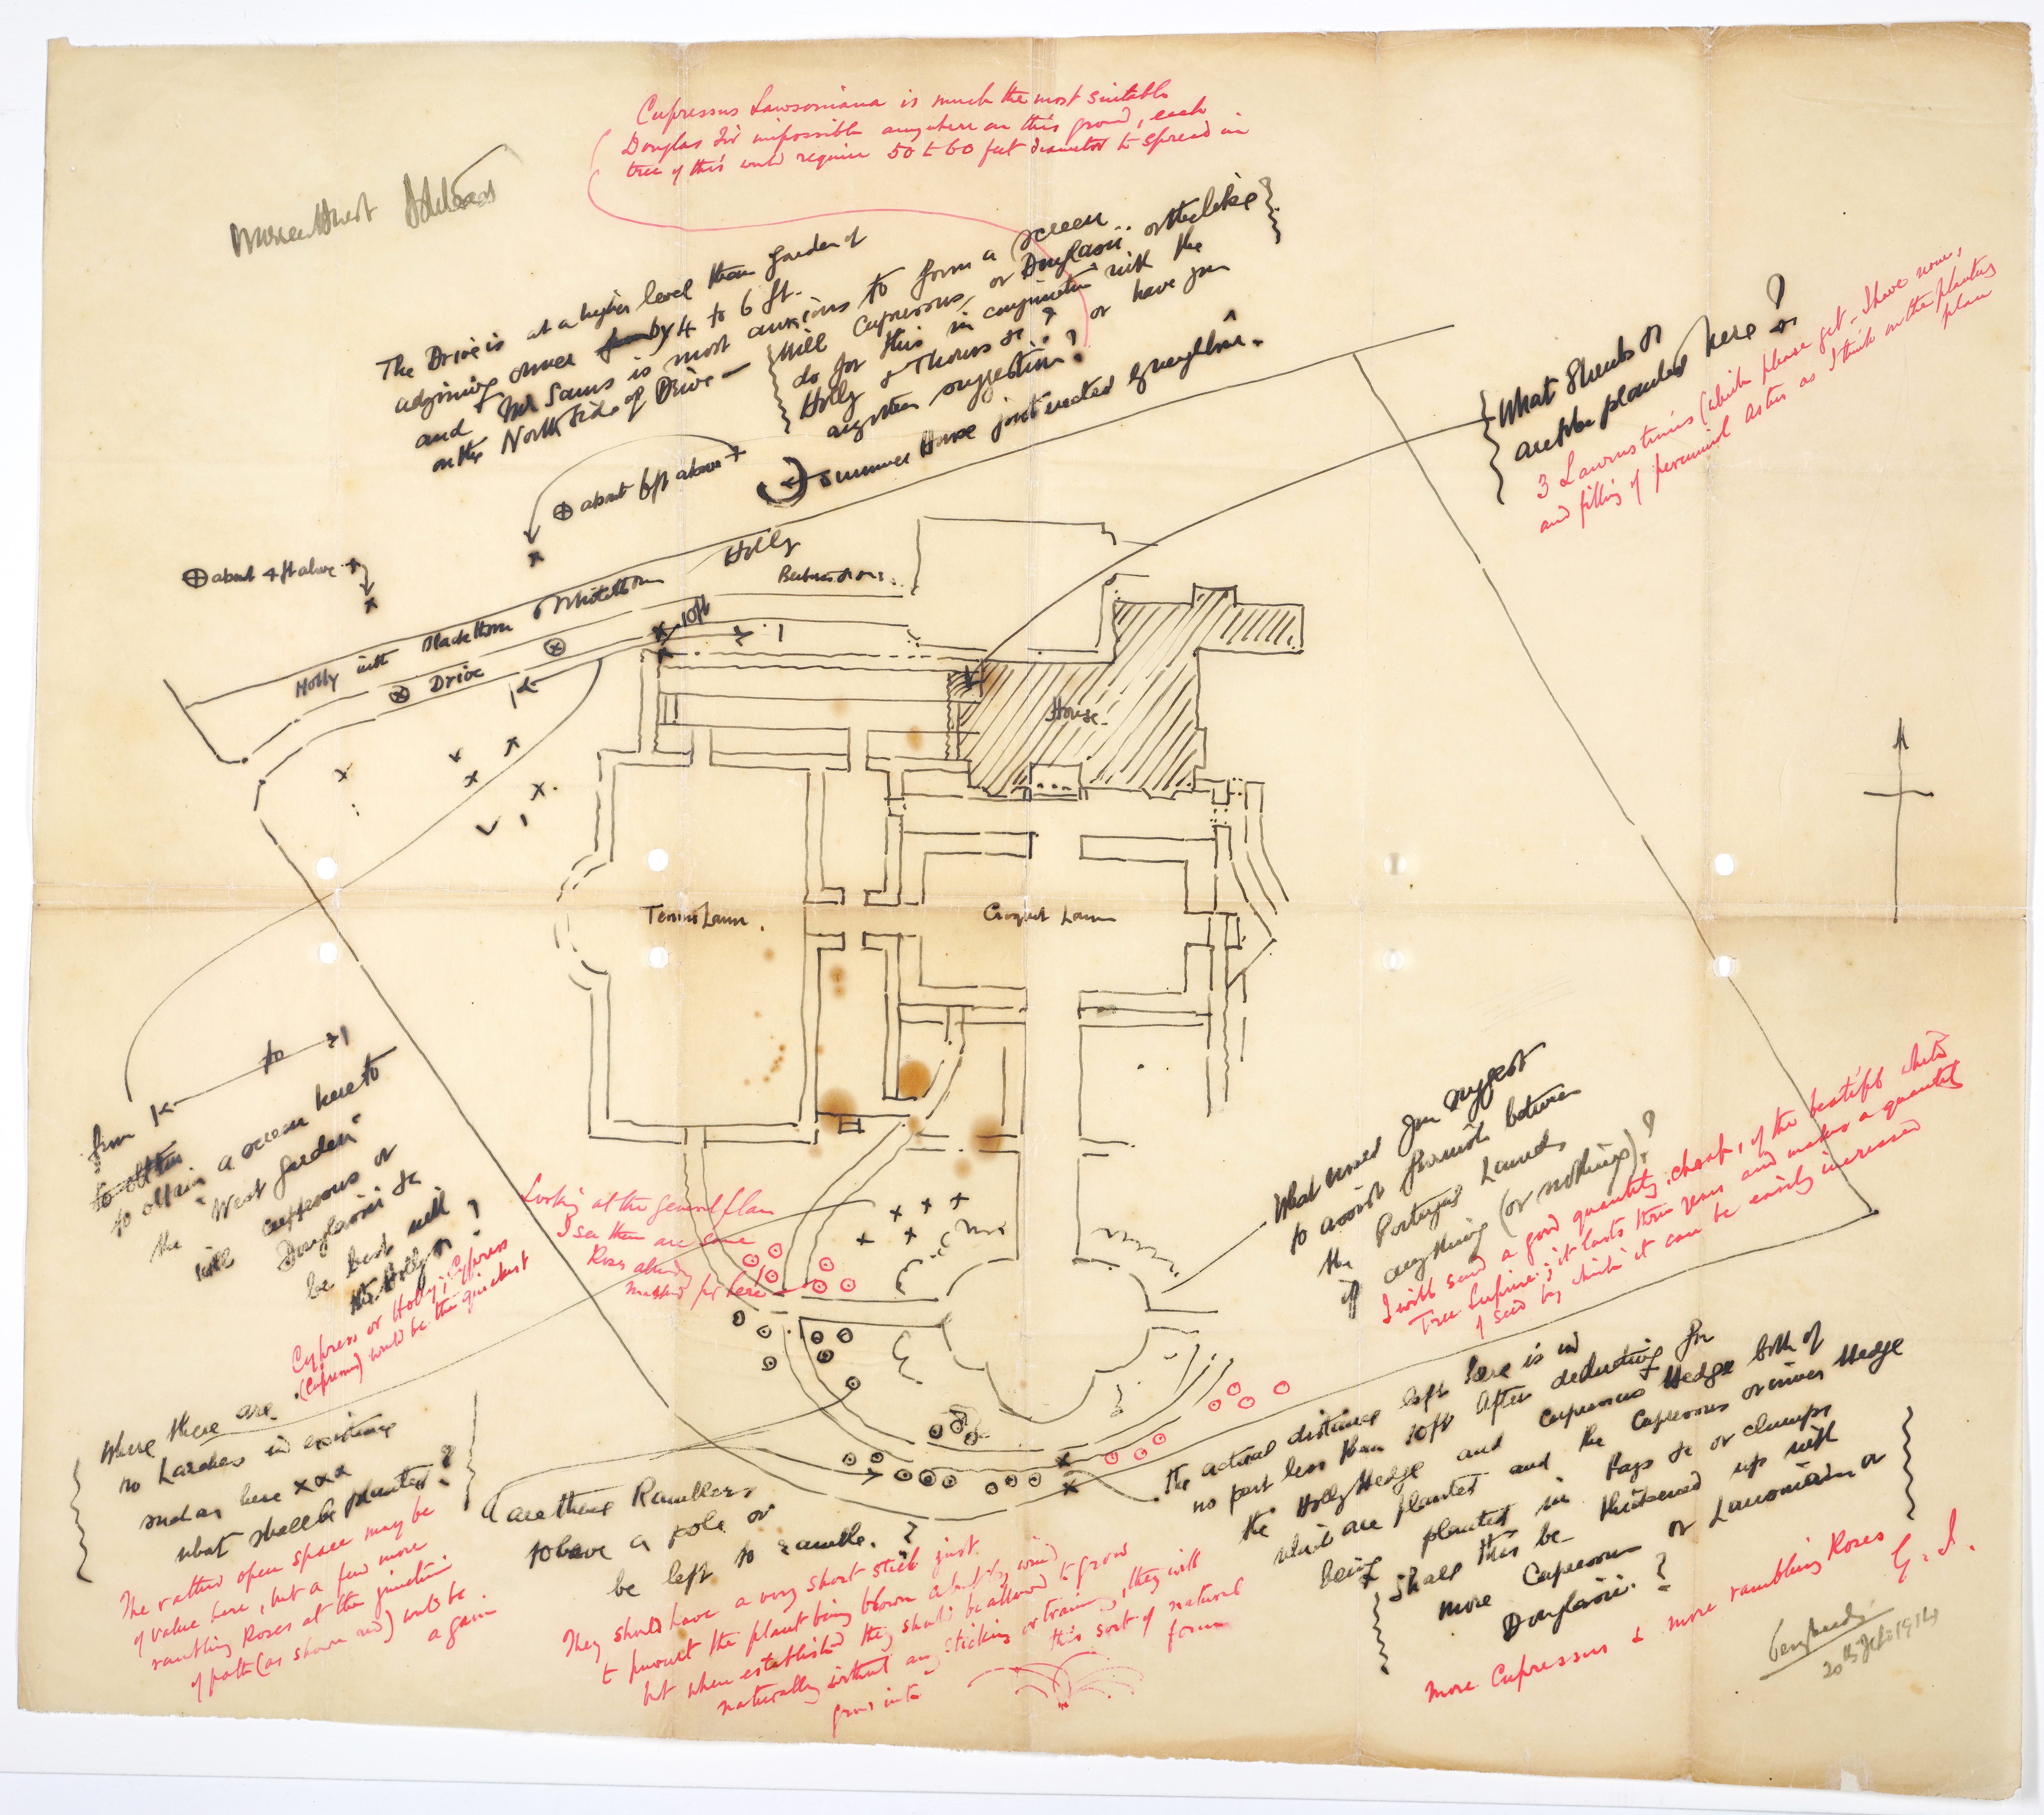 Cupressus Lawsoniana is much the most suitable
Douglas Fir impossible anywhere on this ground, each
tree of this would require 50 to 60 feet diameter to spread in
The Drive is at a higher level than garden of
adjoining owner by 4 to 6 ft.
and Mr Sams is most anxious to form a screen
on the North side of Drive —
Will Cupressus, or Douglasii.. or the like
do for this in conjunction with the
Holly & Thorns &c? or have you
any other suggestion?
Summer House just erected by neighbour.
⊕ about 6ft above
⊕ about 4 ft above
What Shrubs &c
are to be planted here?
3 Laurustinus (which please get - I have none,
and filling of perennial asters as I think on the planting
plan
Holly
Holly with Blackthorn & Whitethorn
10ft
Drive
House.
Tennis Lawn.
Croquet Lawn
from to
to obtain
to obtain a screen here to
the "West Garden"
will cupressus or
Douglasii &c
be best with
the Holly?
Cypress or Holly; Cypress
(Cupressus) would be the quickest
Looking at the general plan
I see there are some
Roses already
marked for here
What would you suggest
to assist furnish between
the Portugal Laurels
if anything (or nothing)?
I will send a good quantity, cheap, of the beautiful white
Tree Lupine; it lasts three years and makes a quantity
of seed by which it can be easily increased
Where there are
no Larches in existence
such as here xxx
what shall be planted?
The rather open space may be
of value here, but a few more
rambling Roses at the junction
of path (as shown red) would be
a gain.
Are these Ramblers
to have a pole or
be left to ramble.?
They should have a very short stick just
to prevent the plant being blown about by wind
but when established they should be allowed to grow
naturally without any sticking or training, they will
grow into this sort of natural
form
The actual distance left here is in
no part less than 10ft after deducting for
the Holly Hedge and Cupressus Hedge both of
which are planted and the Cupressus or inner Hedge
being planted in bays &c or clumps
Shall this be thickened up with
more Cupressus or Lawsoniana or
Douglasii.?
more Cupressus & more rambling Roses
G. J.
20th Feb 1914